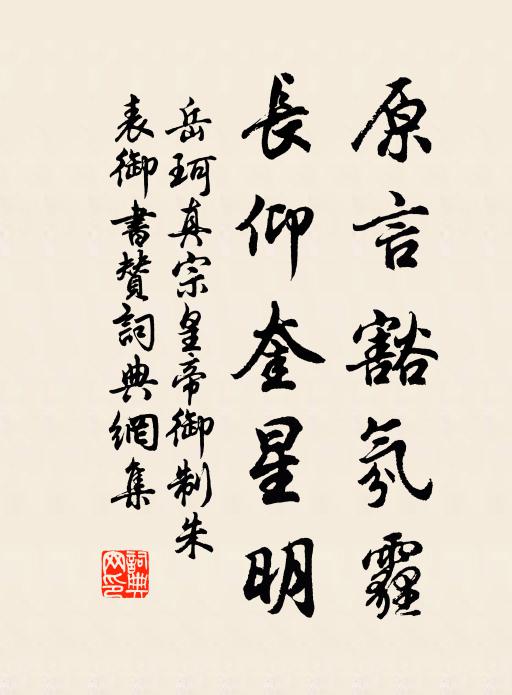 原言豁氛霾
長仰奎星明
岳珂真宗皇帝御制朱
表御書賛詞典網集
詞典網印